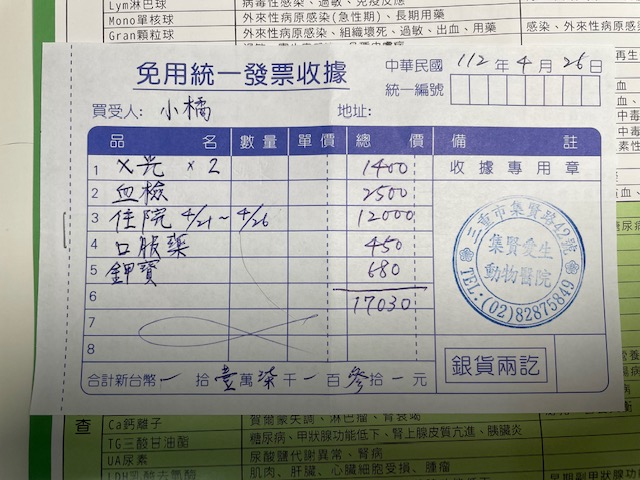 Lym淋巴球 病毒性感染、過敏、免疫反應
Mono單核球 外來性病原感染(急性期)、長期用藥
Gran顆粒球 外來性病原感染、組織壞死、過敏、出血、用藥 感染、外來性病原感
免用統一發票收據
中華民國 112 年 4 月 26 日
統一編號
買受人: 小橘 地址:
品名 數量 單價 總價 備註
1 X光 x 2 1400 收據專用章
2 血檢 2500
3 住院 4/21~4/26 12000
4 口服藥 450
5 鉀寶 680
6 17030
7
8
三重市集賢路42號
集賢愛生
動物醫院
TEL:(02)82875849
銀貨兩訖
合計新台幣 一 拾 壹 萬 柒 千 一 百 參 拾 一 元
查
Ca鈣離子 賀爾蒙失調、淋巴瘤、腎衰竭
TG三酸甘油酯 糖尿病、甲狀腺功能低下、腎上腺皮質亢進、胰臟炎
UA尿素 尿酸鹽代謝異常、腎病
LDH乳酸去氫酶 肌肉、肝臟、心臟細胞受損、腫瘤